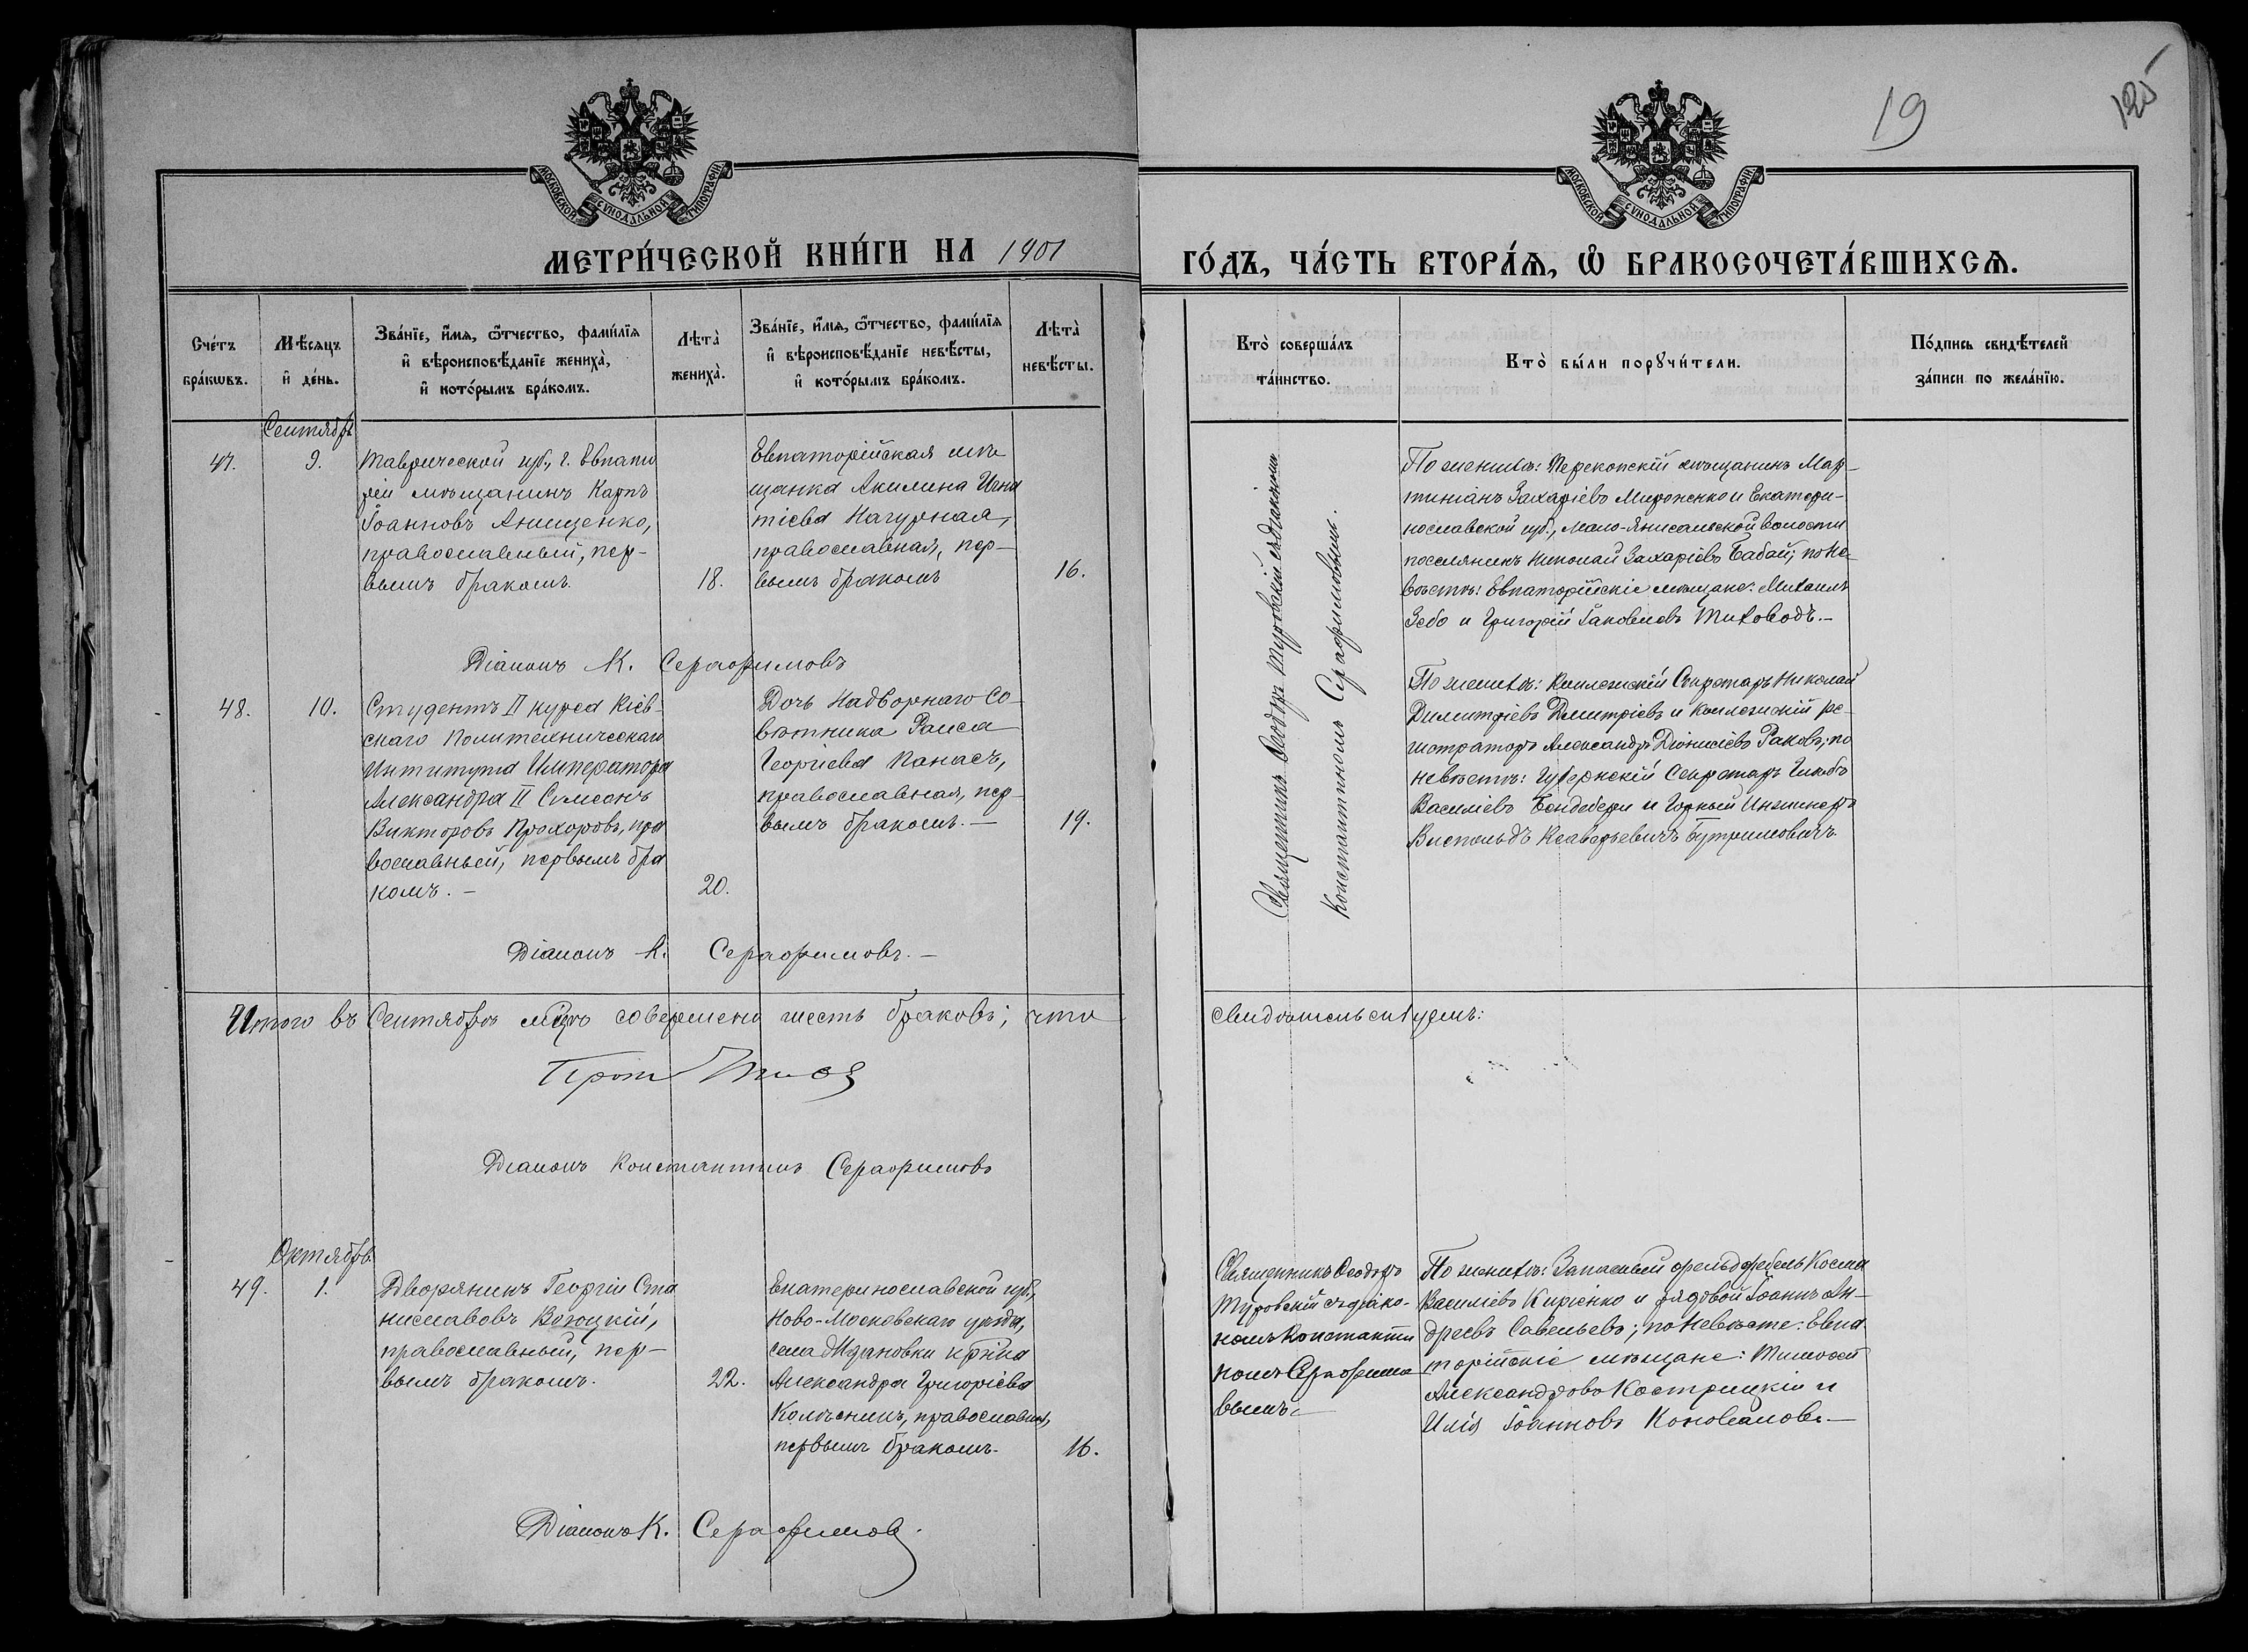 19
125
МОСКОВСКОЙ СУНОДАЛЬНОЙ ТИПОГРАФІИ
МОСКОВСКОЙ СУНОДАЛЬНОЙ ТИПОГРАФІИ
МЕТРИ́ЧЕСКОЙ КНИ́ГИ НА 1901
ГО́ДЪ, ЧА́СТЬ ВТОРА́Ѧ, Ѽ БРАКОСОЧЕТА́ВШИХСѦ.
Сче́тъ
бра́кѡвъ.
Мѣ́сяцъ
и҆ де́нь.
Зва́нїе, и҆́мѧ, ѻ҆́тчество, фами́лїѧ
и҆ вѣроисповѣ́данїе жениха̀,
и҆ кото́рымъ бра́комъ.
Лѣта̀
жениха̀.
Зва́нїе, и҆́мѧ, ѻ҆́тчество, фами́лїѧ
и҆ вѣроисповѣ́данїе невѣ́сты,
и҆ кото́рымъ бра́комъ.
Лѣта̀
невѣ́сты.
Кто̀ соверша́лъ
та́инство.
Кто̀ бы́ли порꙋчи́тели.
По́дпись свидѣ́телей
за́писи по жела́нїю.
Сентябрь
47.
9.
Таврической губ., г. Евпато
ріи мѣщанинъ Карпъ
Іоанновъ Анищенко,
православный, пер-
вымъ бракомъ.
18.
Евпаторійская мѣ
щанка Акилина Игна
тіева Нагурная,
православная, пер-
вымъ бракомъ
16.
Священникъ Ѳеодоръ Туровскій съ діакономъ
Константиномъ Серафимовымъ.
По женихѣ: Перекопскій мѣщанинъ Мар-
тиніанъ Захаріевъ Мироненко и Екатери-
нославской губ., Мало-Янисальской волости
поселянинъ Николай Захаріевъ Бабай; по не-
вѣстѣ: Евпаторійскіе мѣщане: Михаилъ
Зебо и Григорій Іаковлевъ Тиховодъ.-
Діаконъ К. Серафимовъ
48.
10.
Студентъ II курса Кіев-
скаго Политехническаго
Института Императора
Александра II Симеонъ
Викторовъ Прохоровъ, пра
вославный, первымъ бра
комъ. -
20.
Дочь Надворнаго Со-
вѣтника Раиса
Георгіева Панасъ,
православная, пер-
вымъ бракомъ. -
19.
По женихѣ: Коллежскій Секретарь Николай
Димитріевъ Дмитріевъ и коллежскій ре-
гистраторъ Александръ Діонисіевъ Раковъ; по
невѣстѣ: Губернскій Секретарь
Василіевъ Бендебери и Горный Инженеръ
Витольдъ Ксаверьевичъ Бутримовичъ.
Діаконъ К. Серафимовъ. -
Итого въ Сентябрѣ мцѣ совершено шесть браковъ; что
свидѣтельствуемъ:
Діаконъ Константинъ Серафимовъ
Октябрь
49.
1.
Дворянинъ Георгій Ста
ниславовъ Возоцкій,
православный, пер-
вымъ бракомъ.
22.
Екатеринославской губ.,
Ново-Московскаго уѣзда,
села Ждановки
Александра Григоріева
Колѣсникъ, православная,
первымъ бракомъ.
16.
Священникъ Ѳеодоръ
Туровскій съ діако-
номъ Константи
номъ Серафимо
вымъ. -
По женихѣ: Запасный фельдфебель Косма
Василіевъ Кириенко и рядовой Іоаннъ Ан-
дреевъ Савельевъ; по невѣсте: Евпа
торійскіе мѣщане: Тимофей
Александровъ Кострицкій и
Илія Іоанновъ Коноваловъ. -
Діаконъ К. Серафимовъ.